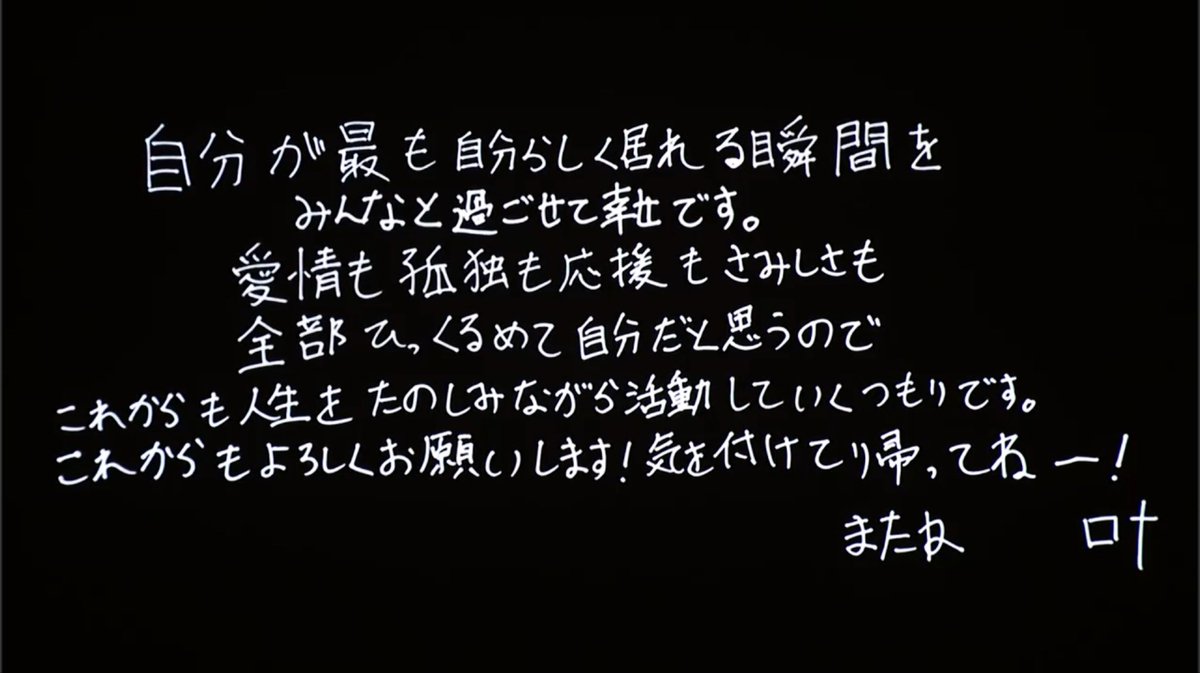 自分が最も自分らしく居れる瞬間を
みんなと過ごせて幸せです。
愛情も孤独も応援もさみしさも
全部ひっくるめて自分だと思うので
これからも人生をたのしみながら活動していくつもりです。
これからもよろしくお願いします!気を付けて帰ってねー!
またね 叶